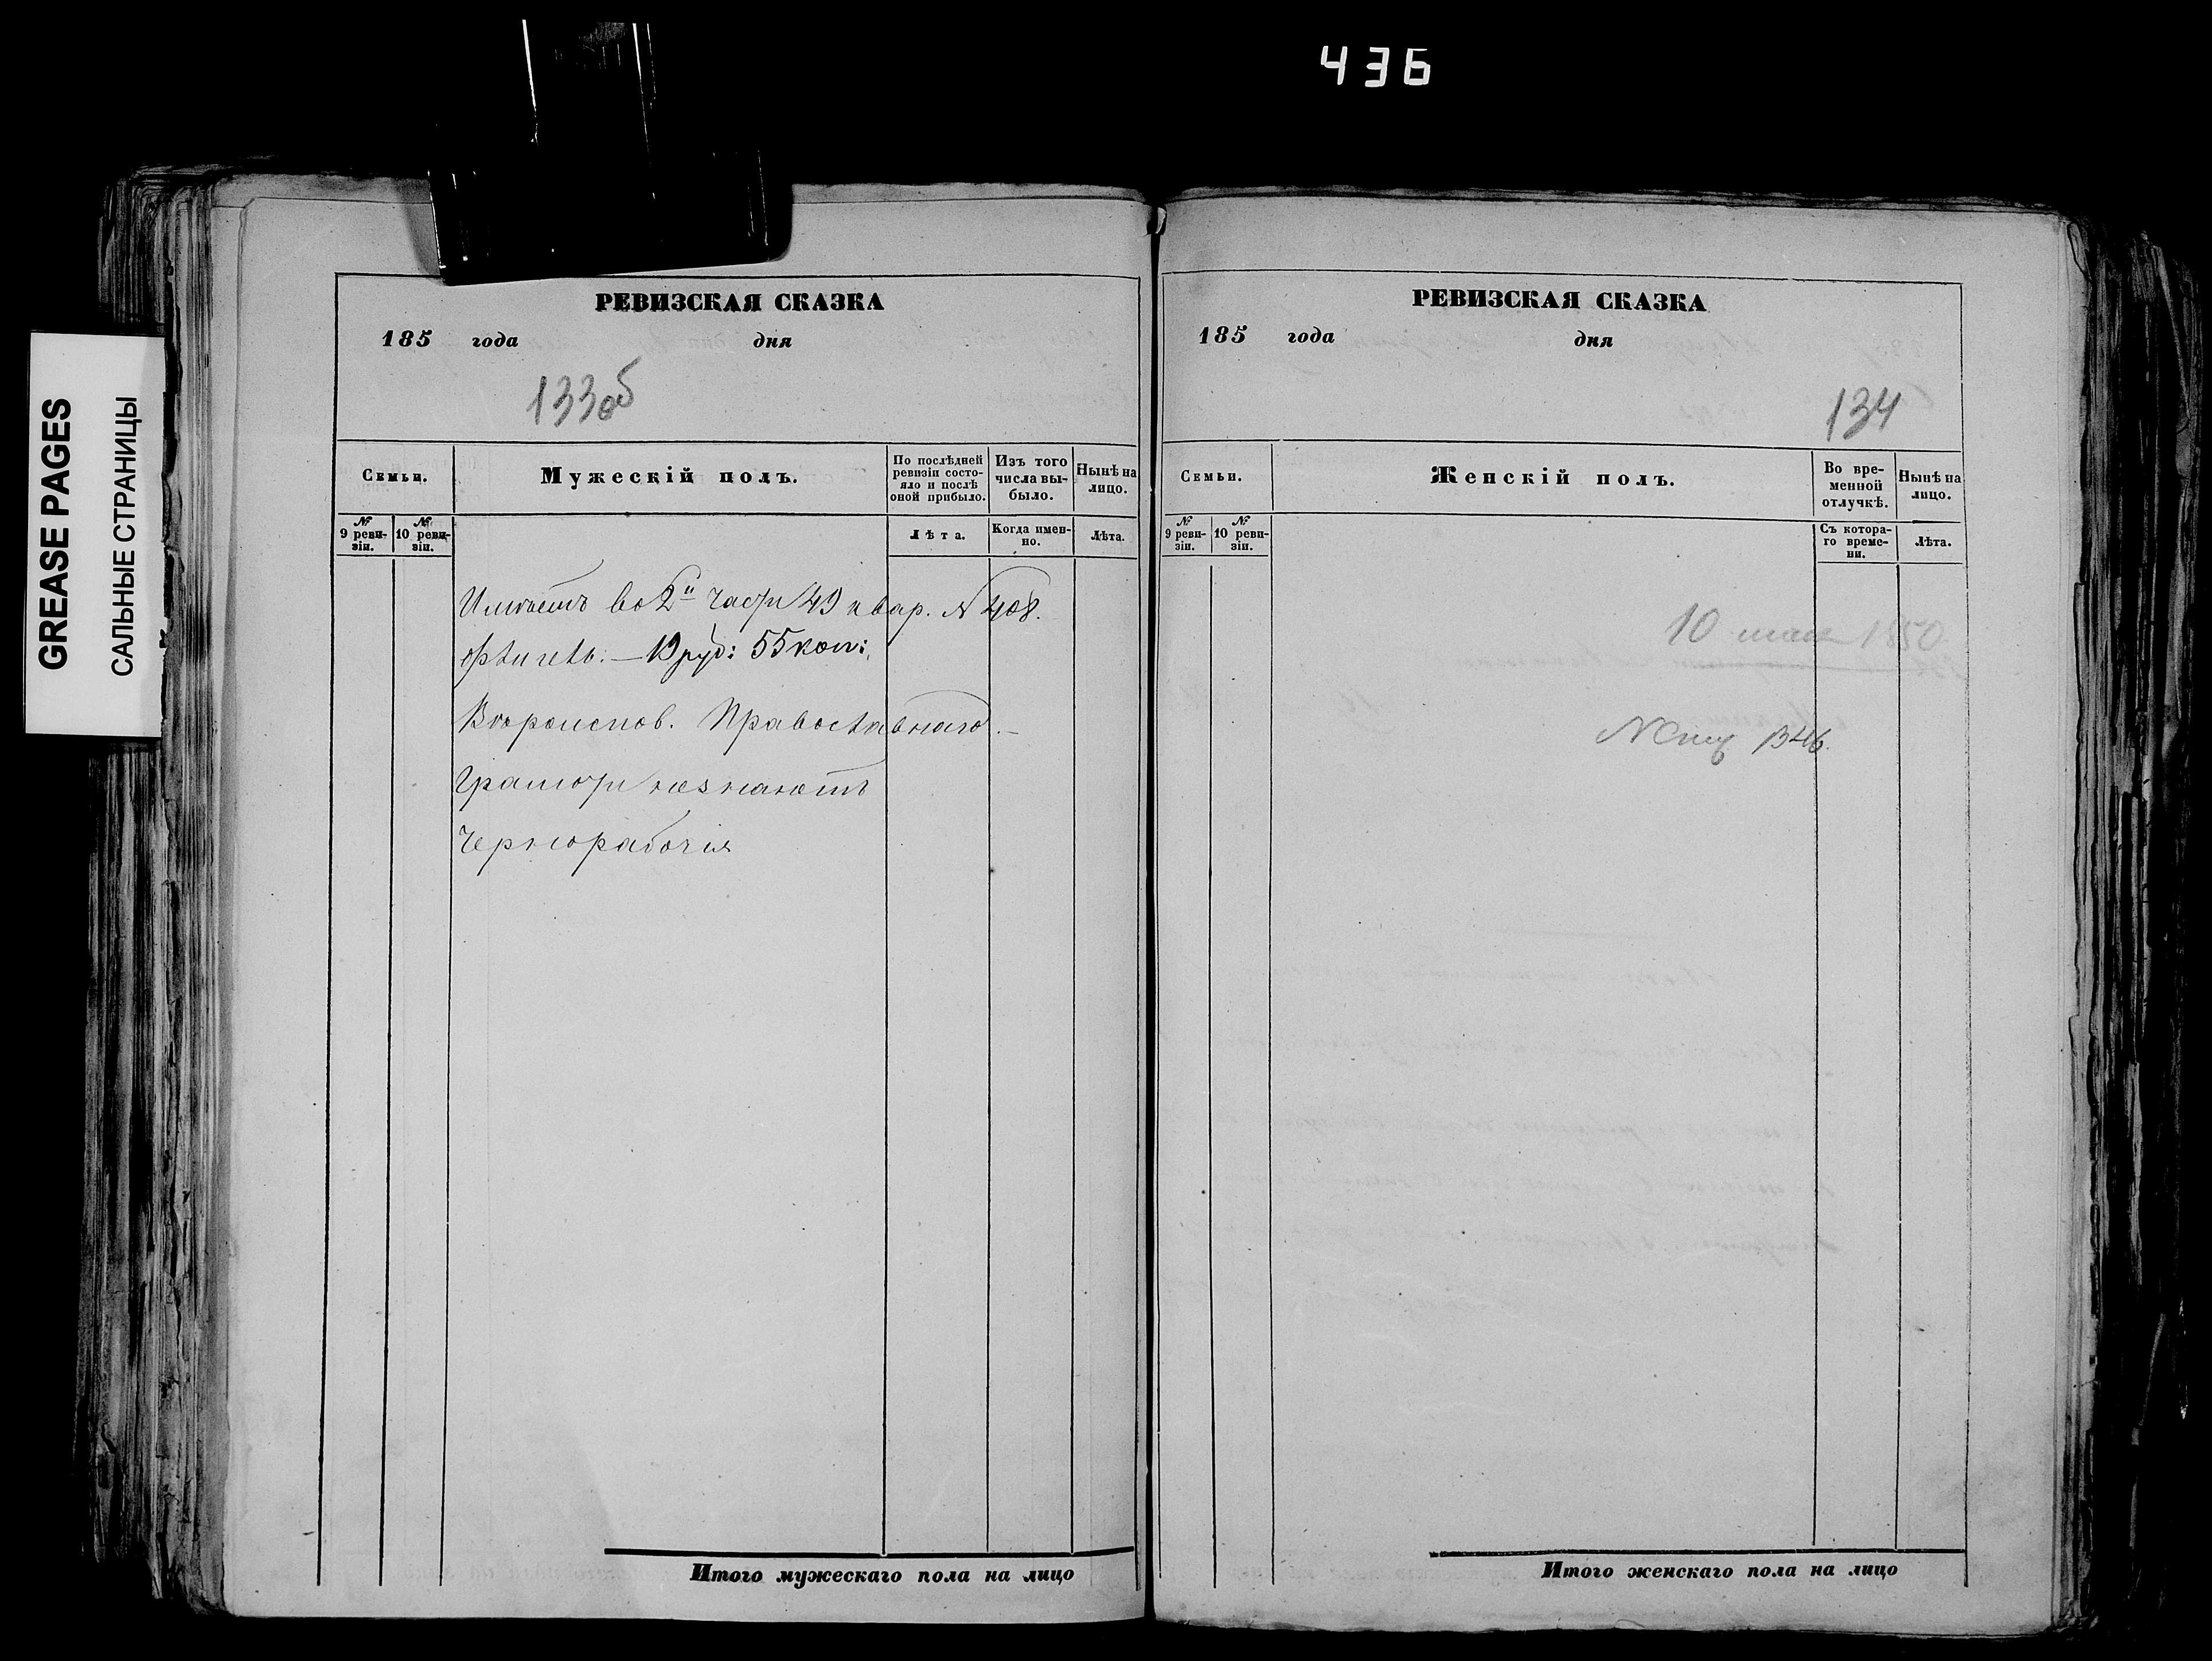 436
GREASE PAGES
САЛЬНЫЕ СТРАНИЦЫ
РЕВИЗСКАЯ СКАЗКА
185 года дня
133об
Семьи.
Мужескій полъ.
По послѣдней ревизіи состояло и послѣ оной прибыло.
Изъ того числа выбыло.
Нынѣ на лицо.
№ 9 ревизіи.
№ 10 ревизіи.
Лѣта.
Когда именно.
Лѣта.
Имѣетъ во 2й части 49 квар. N 408.
флигель. — 19 руб: 55 коп:
Вѣроиспов. Православнаго. —
Грамоти незнаютъ
Чернорабочія
Итого мужескаго пола на лицо
РЕВИЗСКАЯ СКАЗКА
185 года дня
134
Семьи.
Женскій полъ.
Во временной отлучкѣ.
Нынѣ на лицо.
№ 9 ревизіи.
№ 10 ревизіи.
Съ котораго времени.
Лѣта.
10 мая 1850
1346.
Итого женскаго пола на лицо